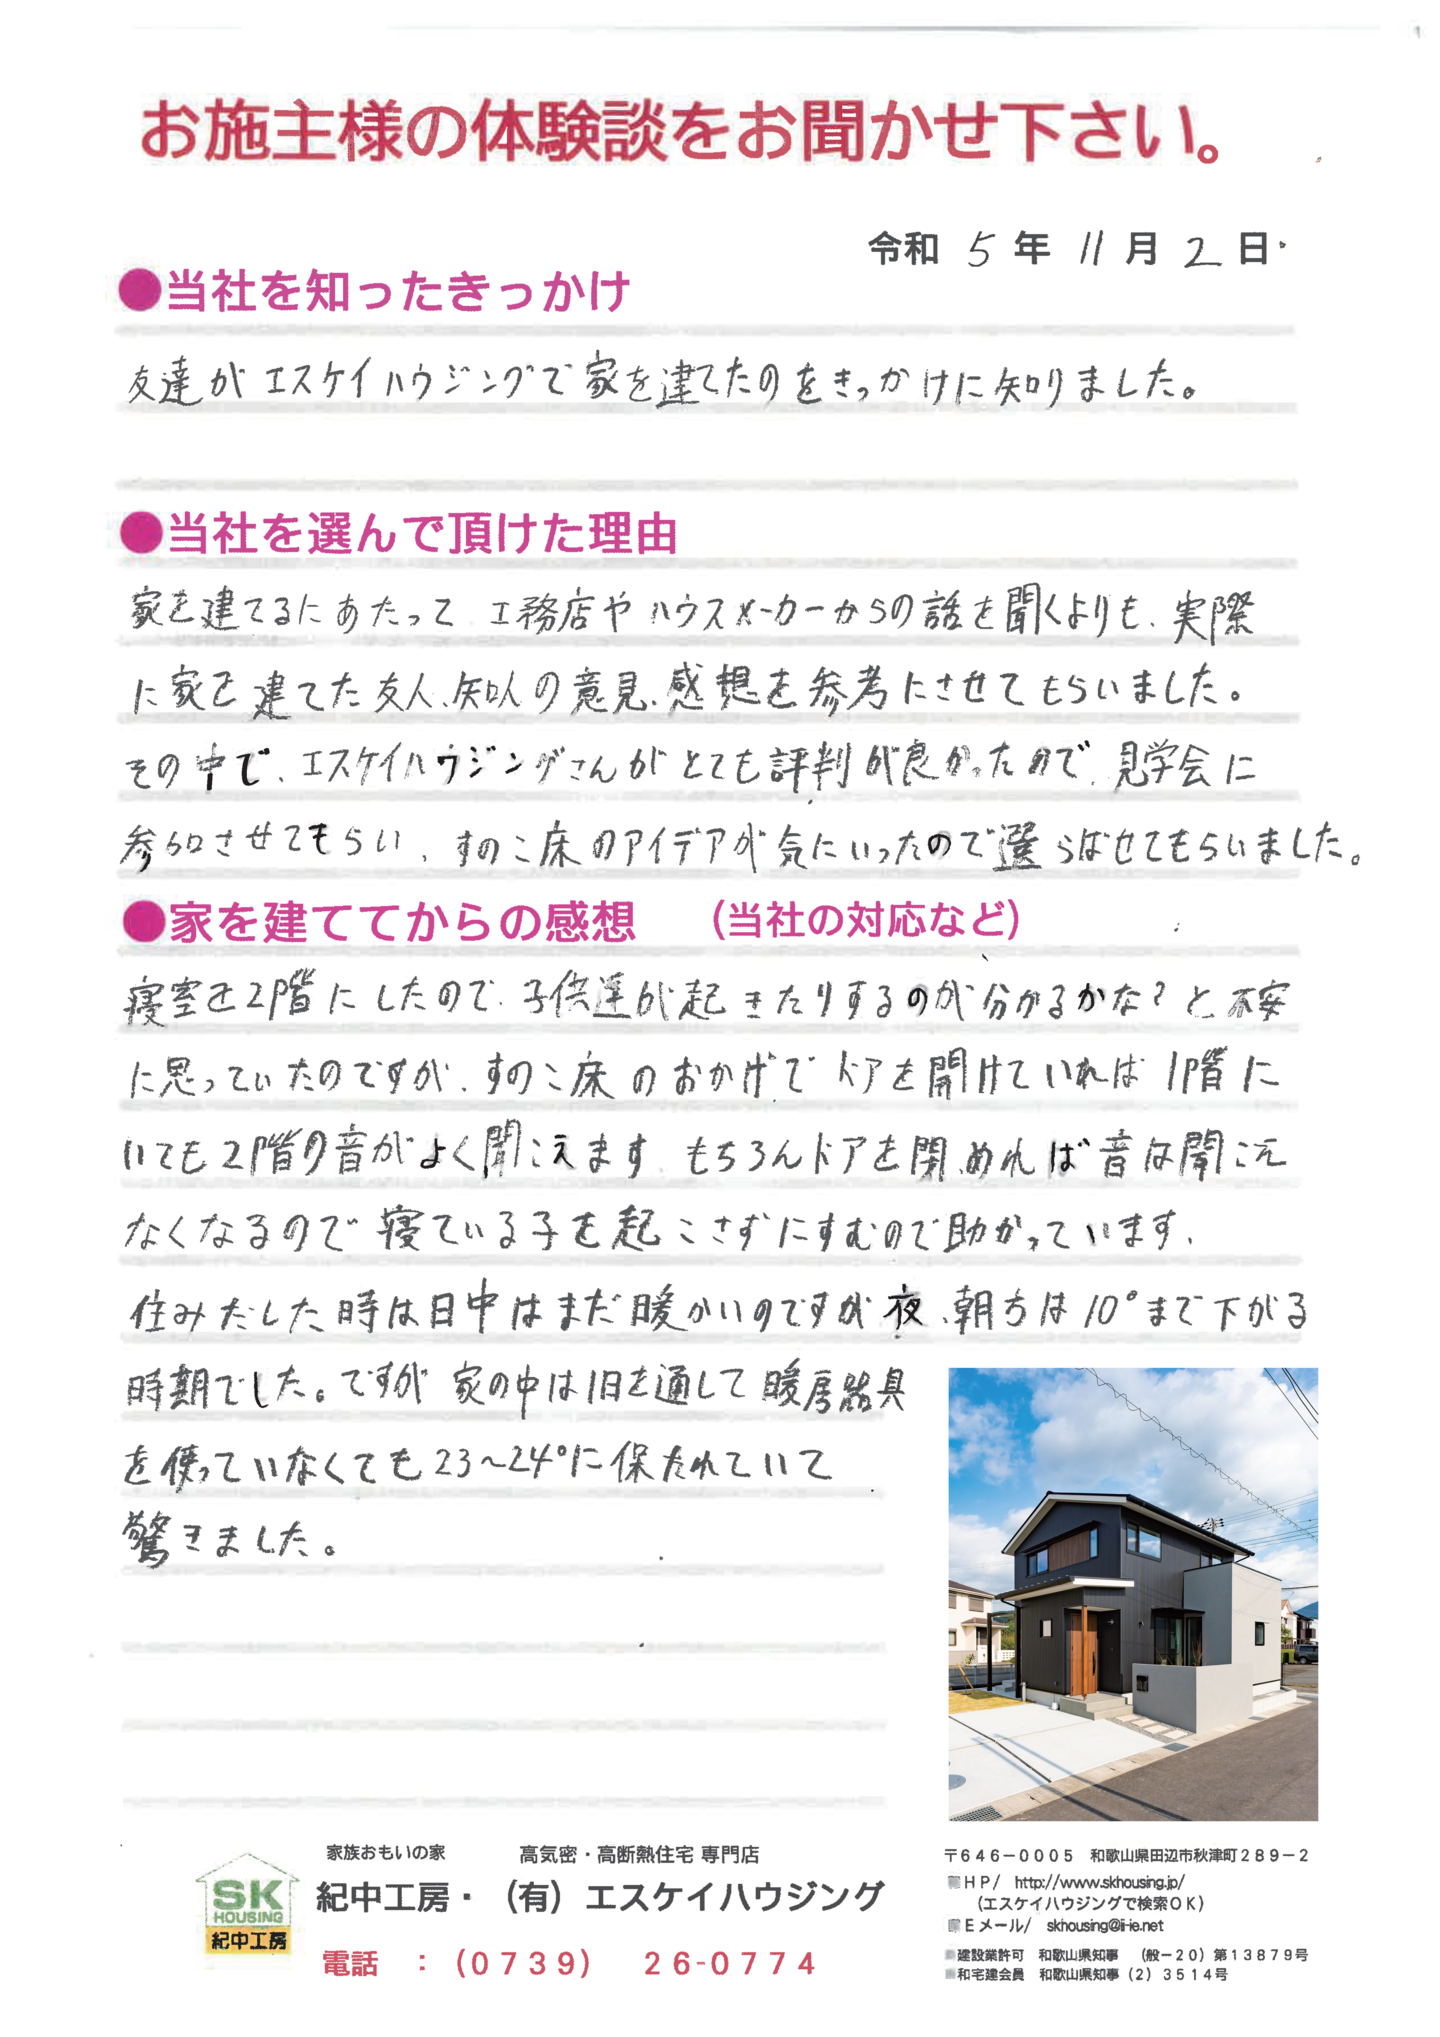 お施主様の体験談をお聞かせ下さい。
令和 5 年 11 月 2 日
●当社を知ったきっかけ
友達がエスケイハウジングで家を建てたのをきっかけに知りました。
●当社を選んで頂けた理由
家を建てるにあたって、工務店やハウスメーカーからの話を聞くよりも、実際
に家を建てた友人、知人の意見、感想を参考にさせてもらいました。
その中で、エスケイハウジングさんがとても評判が良かったので、見学会に
参加させてもらい、すのこ床のアイデアが気にいったので選らばせてもらいました。
●家を建ててからの感想 (当社の対応など)
寝室を2階にしたので、子供達が起きたりするのが分かるかな?と不安
に思っていたのですが、すのこ床のおかげでドアを開けていれば1階に
いても2階の音がよく聞こえます。もちろんドアを閉めれば音は聞こえ
なくなるので寝ている子を起こさずにすむので助かっています、
住みだした時は日中はまだ暖かいのですが夜、朝方は10°まで下がる
時期でした。ですが家の中は1日を通して暖房器具
を使っていなくても23~24°に保たれていて
驚きました。
SK
HOUSING
紀中工房
家族おもいの家 高気密・高断熱住宅 専門店
紀中工房・(有)エスケイハウジング
電話 : (0739) 26-0774
〒646-0005 和歌山県田辺市秋津町289-2
HP/ http://www.skhousing.jp/
(エスケイハウジングで検索OK)
Eメール/ skhousing@li-ie.net
建設業許可 和歌山県知事 (般-20)第13879号
和宅建会員 和歌山県知事(2)3514号